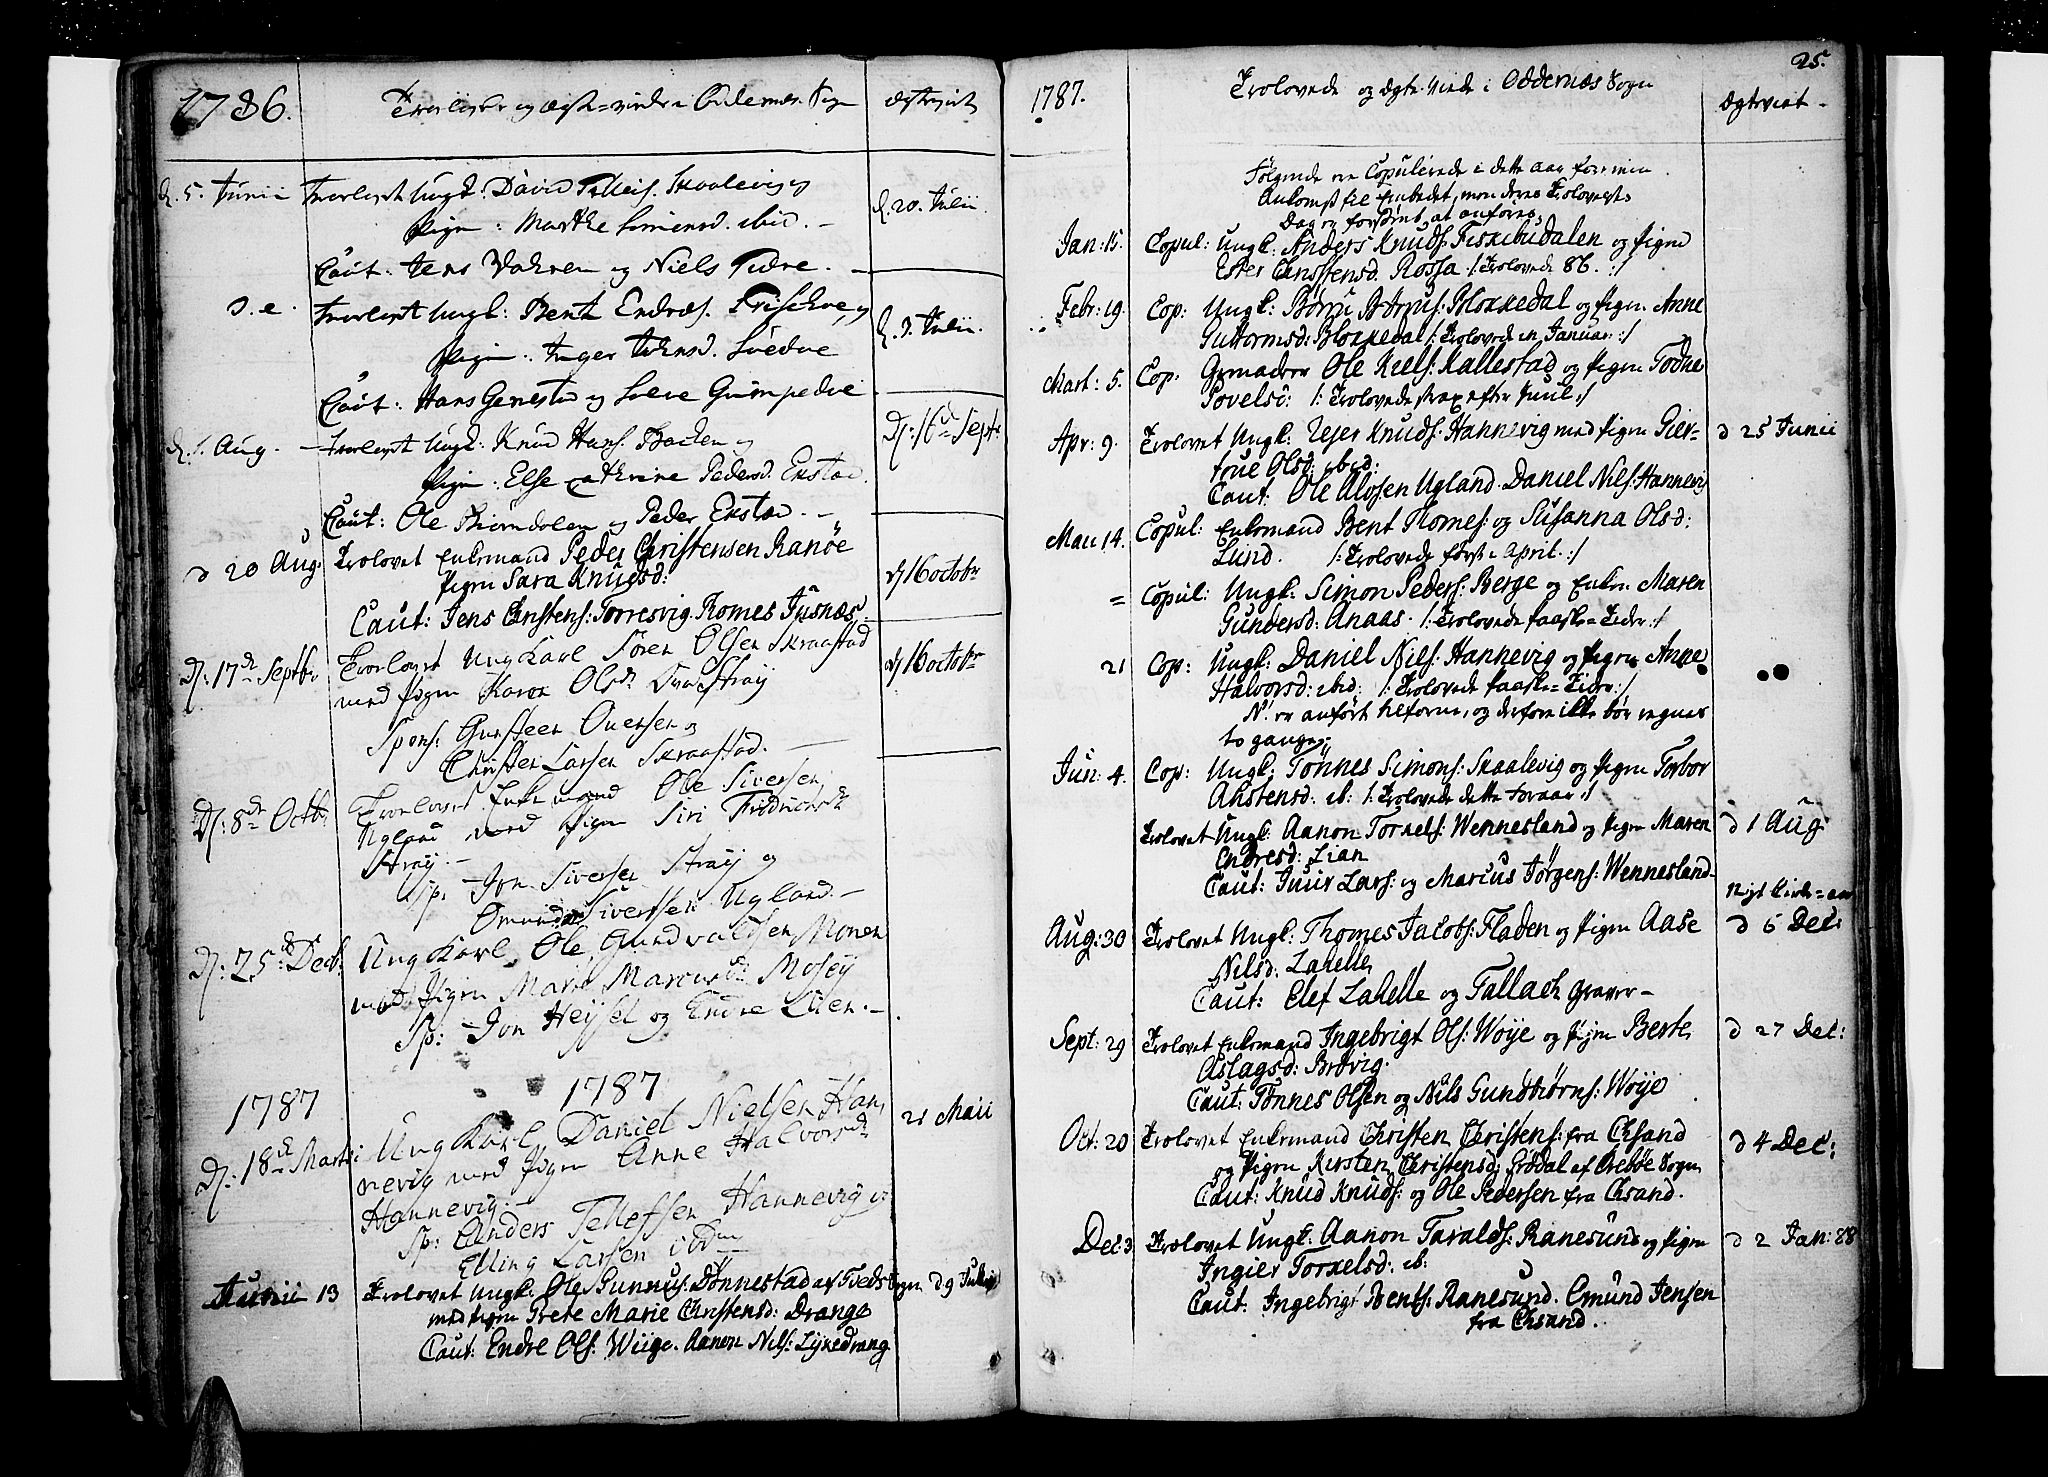 1786.
Trolovede og ægte-viede i Oddernæs Sogn
ægteviet
d. 5. Junii
Trolovet Ungk: David Tellefs: Skaalevig og
d. 20. Julii.
Pigen: Marthe Simensd. ibid. -
Caut: Jens Vahren og Niels
d. e.
Trolovet Ungk: Bent Endres.
d. 9. Julii.
Pigen: Inger
Caut: Hans og
d. 1. Aug. -
Trolovet Ungk: Knud Hans. Bachen og
D: 16de Septr
Pigen: Else Cathrine Pedersd. Enstad.
Caut: Ole Biorndalen og Peder Enstad. -
d 20 Aug:
Trolovet Enkemand Peder Christensen Ranöe
Pigen Sara Knudsd:
d 16 octobr
Caut: Jens Christens: Torresvig. Thomes Jusnæs
D: 17de Septbr
Trolovet Ung Karl Sören Olsen Skraastad
d 16 octobr
med Pigen Karen Olsdr Stray
Spons: Gunsteen Ouensen og
Christen Larsen Skraastad.
D: 8de Octb:
Trolovet Enkemand Ole Siversen
Ugland med Pigen Siri
Stray. -
Sp: - Jon Siversen Stray og
Omund Siversen Ugland. -
D: 25de Decb:
Ung Karl Ole Gundvaldsen Monen
med Pigen Mari Marcusdr Mosey
Sp: - Jon Heysel og Endre Lien. -
1787
1787
D: 18de Martii
Ung Karl Daniel Nielsen Han
21 Maii
nevig med Pigen Anne Halvorsdr
Hannevig. -
Sp: Anders Tellefsen Hannevig og
Elling Larsen ibdm
Junii 13
Trolovet Ungk: Ole Gunnus: Dönnestad af Tveds Sogn
d 9 Julii
med Pigen Grete Marie Christensd: Drange
Caut: Endre Ols: Wiige. Aanon Nils: Lyxedrang
25.
1787.
Trolovede og Ægte-Viede i Oddernæs Sogn
Ægteviet -
Fölgende ere Copulerede i dette aar for min
Ankomst til Embedet, men deres Trolovelses
Dag er forsömt at anföres,
Jan: 15.
Copul: Ungk: Anders Knuds: Fiskebudalen og Pigen
Ester Christensd. Rossa /: Trolovede 86. :/
Febr: 19.
Cop: Ungk: Börru Börrus: Bloxkedal og Pigen Anne
Guttormsd: Bloxkedal /: Trolovede in Januar :/
Mart: 5.
Cop: Ole Niels: Kallestad og Pigen Todne
Povelsd: /: Trolovede strax efter Juul :/
Apr: 9.
Trolovet Ungk: Rejer Knuds: Hannevig med Pigen Gier-
d 25 Junii
true Olsd: ibid:
Caut: Ole Alofsen Ugland. Daniel Nils: Hannevig
Maii 14.
Copul: Enkemand Bent Thomes: og Susanna Olsd:
Lund. /: Trolovede först i April. :/
=
Copul: Ungk: Simon Peders: Berge og Enken Maren
Gundersd: Anaas. /: Trolovede Paaske-Tider :/
21
Cop: Ungk: Daniel Nils: Hannevig og Pigen Anne
Halvorsd: ibid: /: Trolovede Paaske-Tider :/
N. er anfört tilforne, og derfore ikke bör regnes
to gange,-
Jun: 4.
Cop: Ungk: Tönnes Simons: Skaalevig og Pigen Torbor
Ahstensd: ib: /: Trolovede dette Foraar :/
Trolovet Ungk: Aanon Torkels: Wennesland og Pigen Maren
d 1 Aug:
Endresd: Lian
Caut: Juur Lars: og Marcus Jörgens: Wennesland.
Nyt Kirke-aar
Aug: 30
Trolovet Ungk: Thomes Jacobs: Fladen og Pigen Aase
d 6 Dec:
Nilsd: Lahelle,
Caut: Elef Lahelle og Tallach Graver -
Sept: 29
Trolovet Enkemand Ingebrigt Ols: Woije og Pigen Berte
d 27 Dec:
Aslagsd: Brövig.
Caut: Tönnes Olsen og Nils Gundbiörns: Woije
Oct: 20
Trolovet Enkemand Christen Christens: fra Chsand
d 4 Dec:
og Pigen Kirsten Christensd: Grödal af Oreböe Sogn
Caut: Knud Knuds: og Ole Pedersen fra Chsand.
Dec: 3
Trolovet Ungk: Aanon Taralds: Ranesund og Pigen
d 2 Jan: 88
Ingier Torkelsd: ib:
Caut: Ingebrigt Bents: Ranesund. Omund Jensen
fra Chsand.